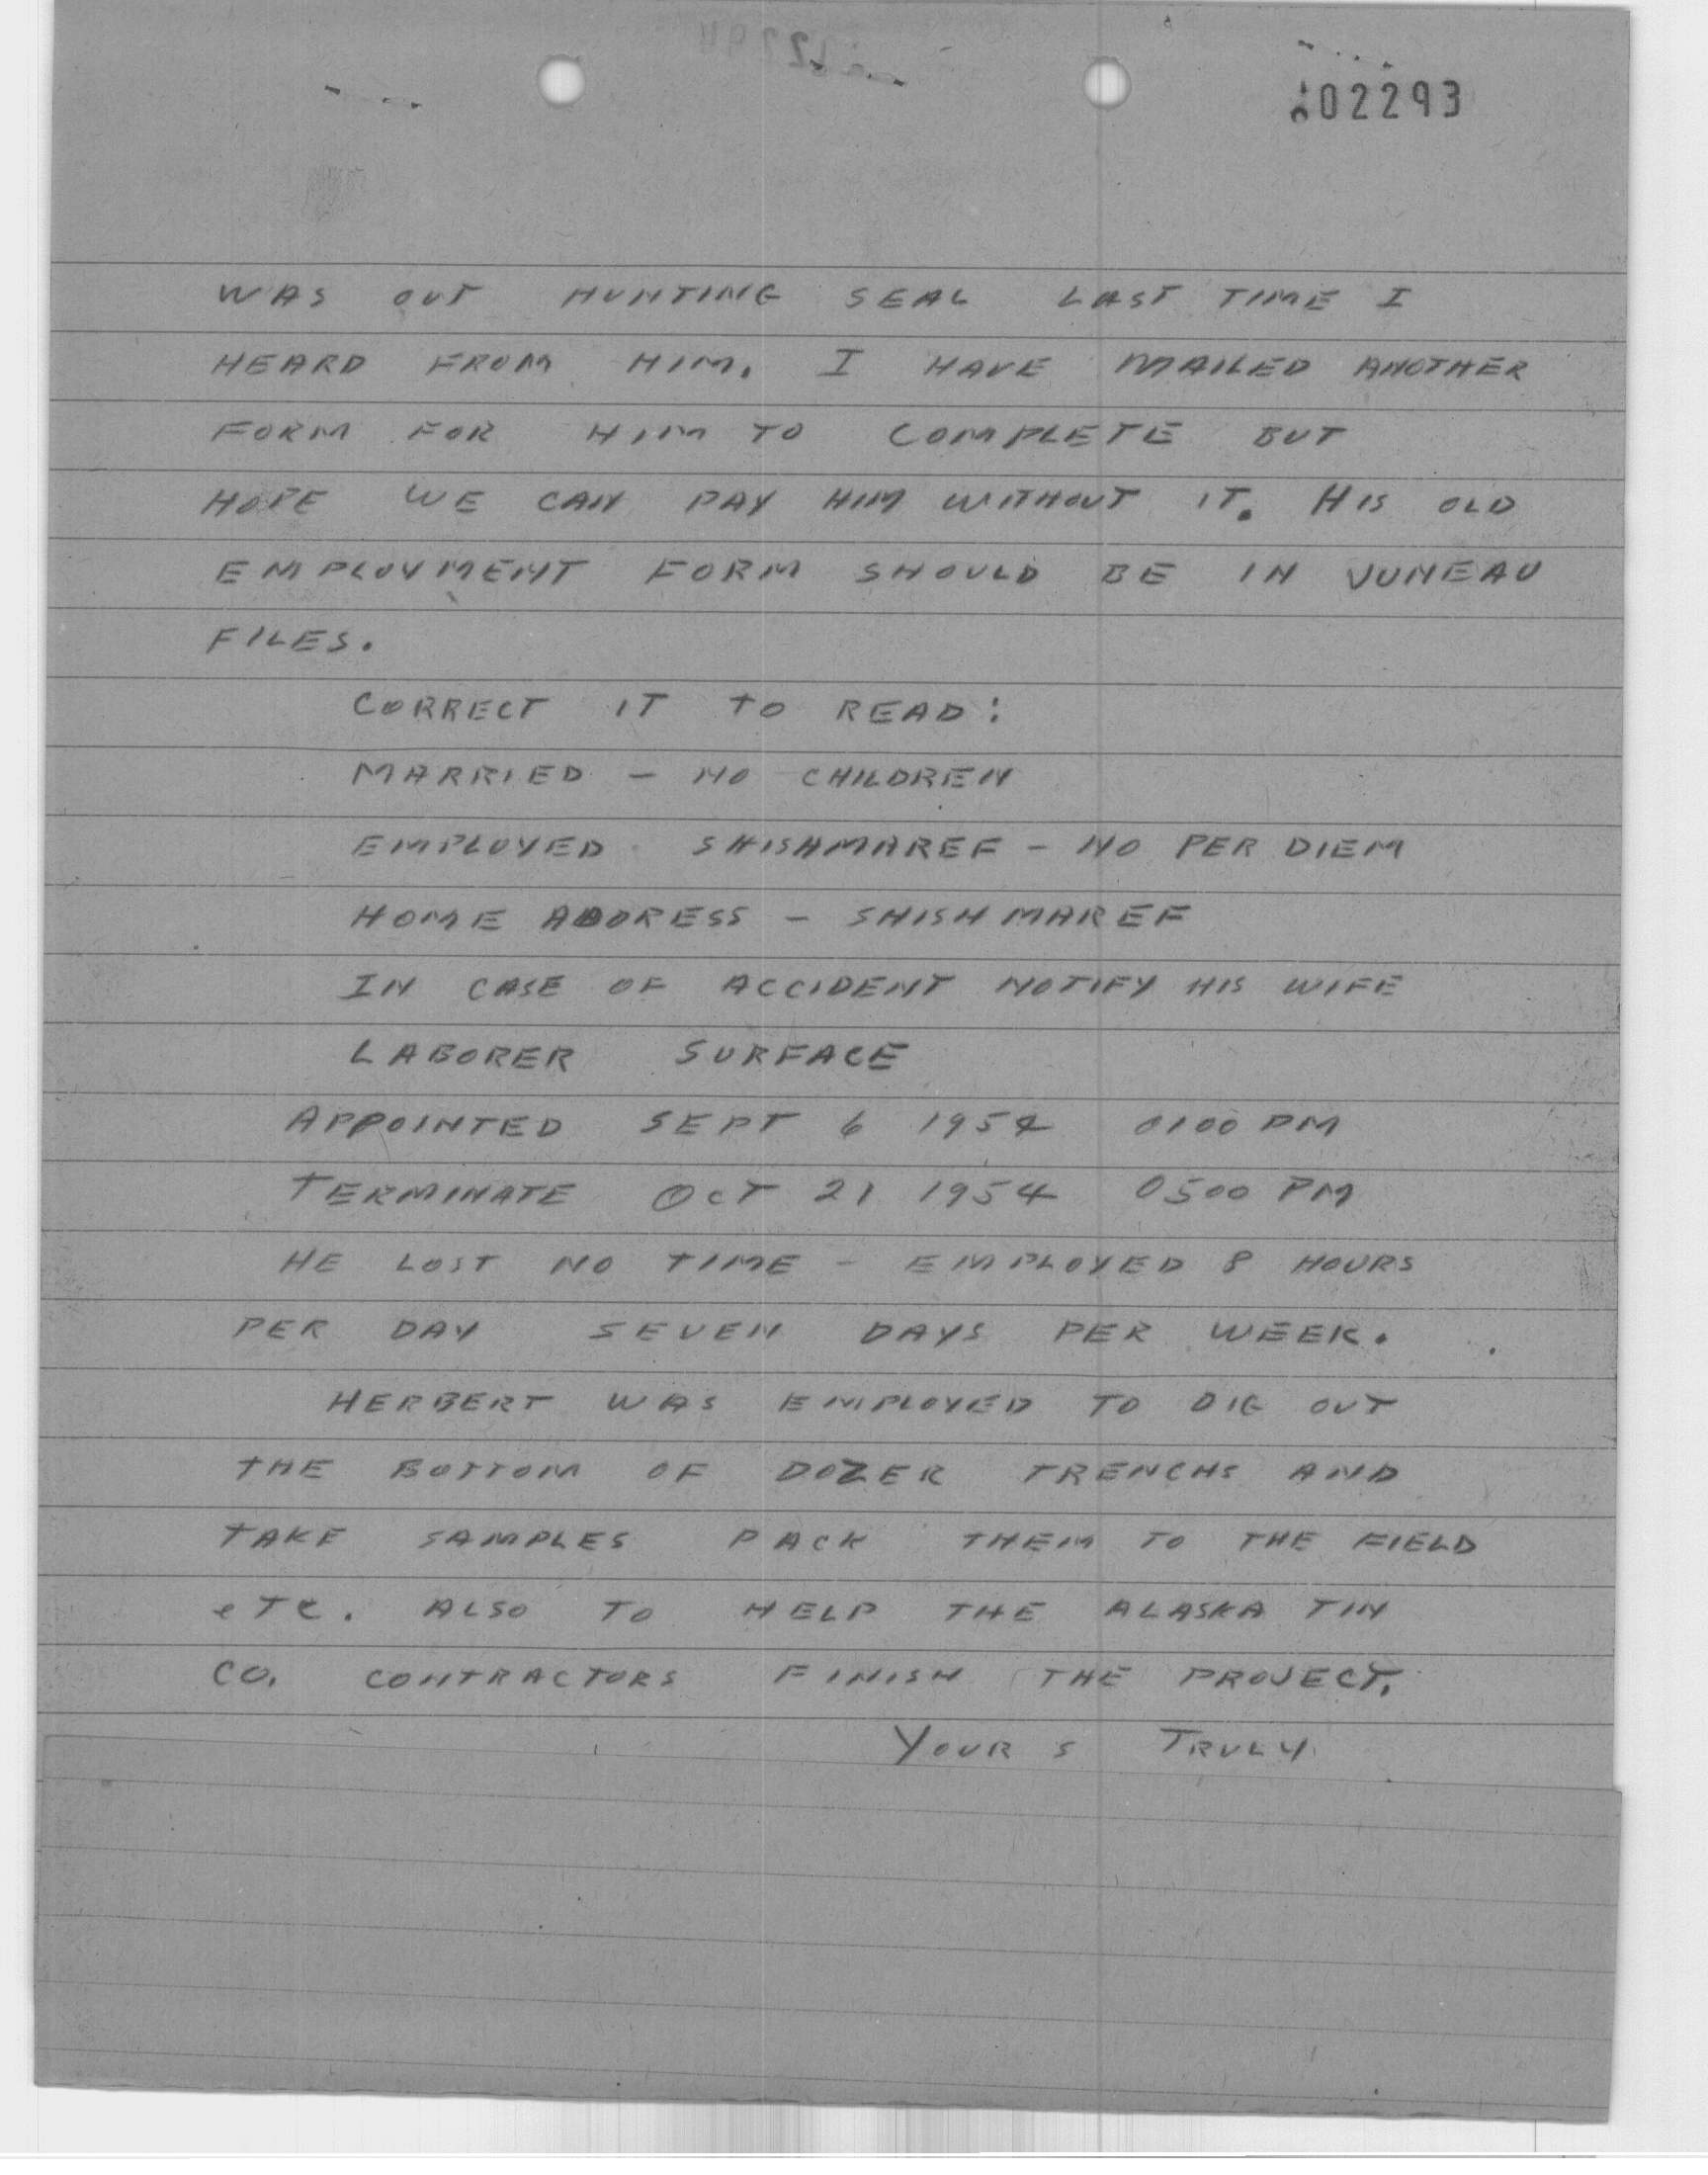 02293
WAS OUT HUNTING SEAL LAST TIME I
HEARD FROM HIM. I HAVE MAILED ANOTHER
FORM FOR HIM TO COMPLETE BUT
HOPE WE CAN PAY HIM WITHOUT IT. HIS OLD
EMPLOYMENT FORM SHOULD BE IN JUNEAU
FILES.
CORRECT IT TO READ:
MARRIED - NO CHILDREN
EMPLOYED SHISHMAREF - NO PER DIEM
HOME ADDRESS - SHISHMAREF
IN CASE OF ACCIDENT NOTIFY HIS WIFE
LABORER SURFACE
APPOINTED SEPT 6 1954 0100 PM
TERMINATE OCT 21 1954 0500 PM
HE LOST NO TIME - EMPLOYED 8 HOURS
PER DAY SEVEN DAYS PER WEEK.
HERBERT WAS EMPLOYED TO DIG OUT
THE BOTTOM OF DOZER TRENCHS AND
TAKE SAMPLES PACK THEM TO THE FIELD
eTC. ALSO TO HELP THE ALASKA TIN
CO. CONTRACTORS FINISH THE PROJECT.
YOURS TRULY